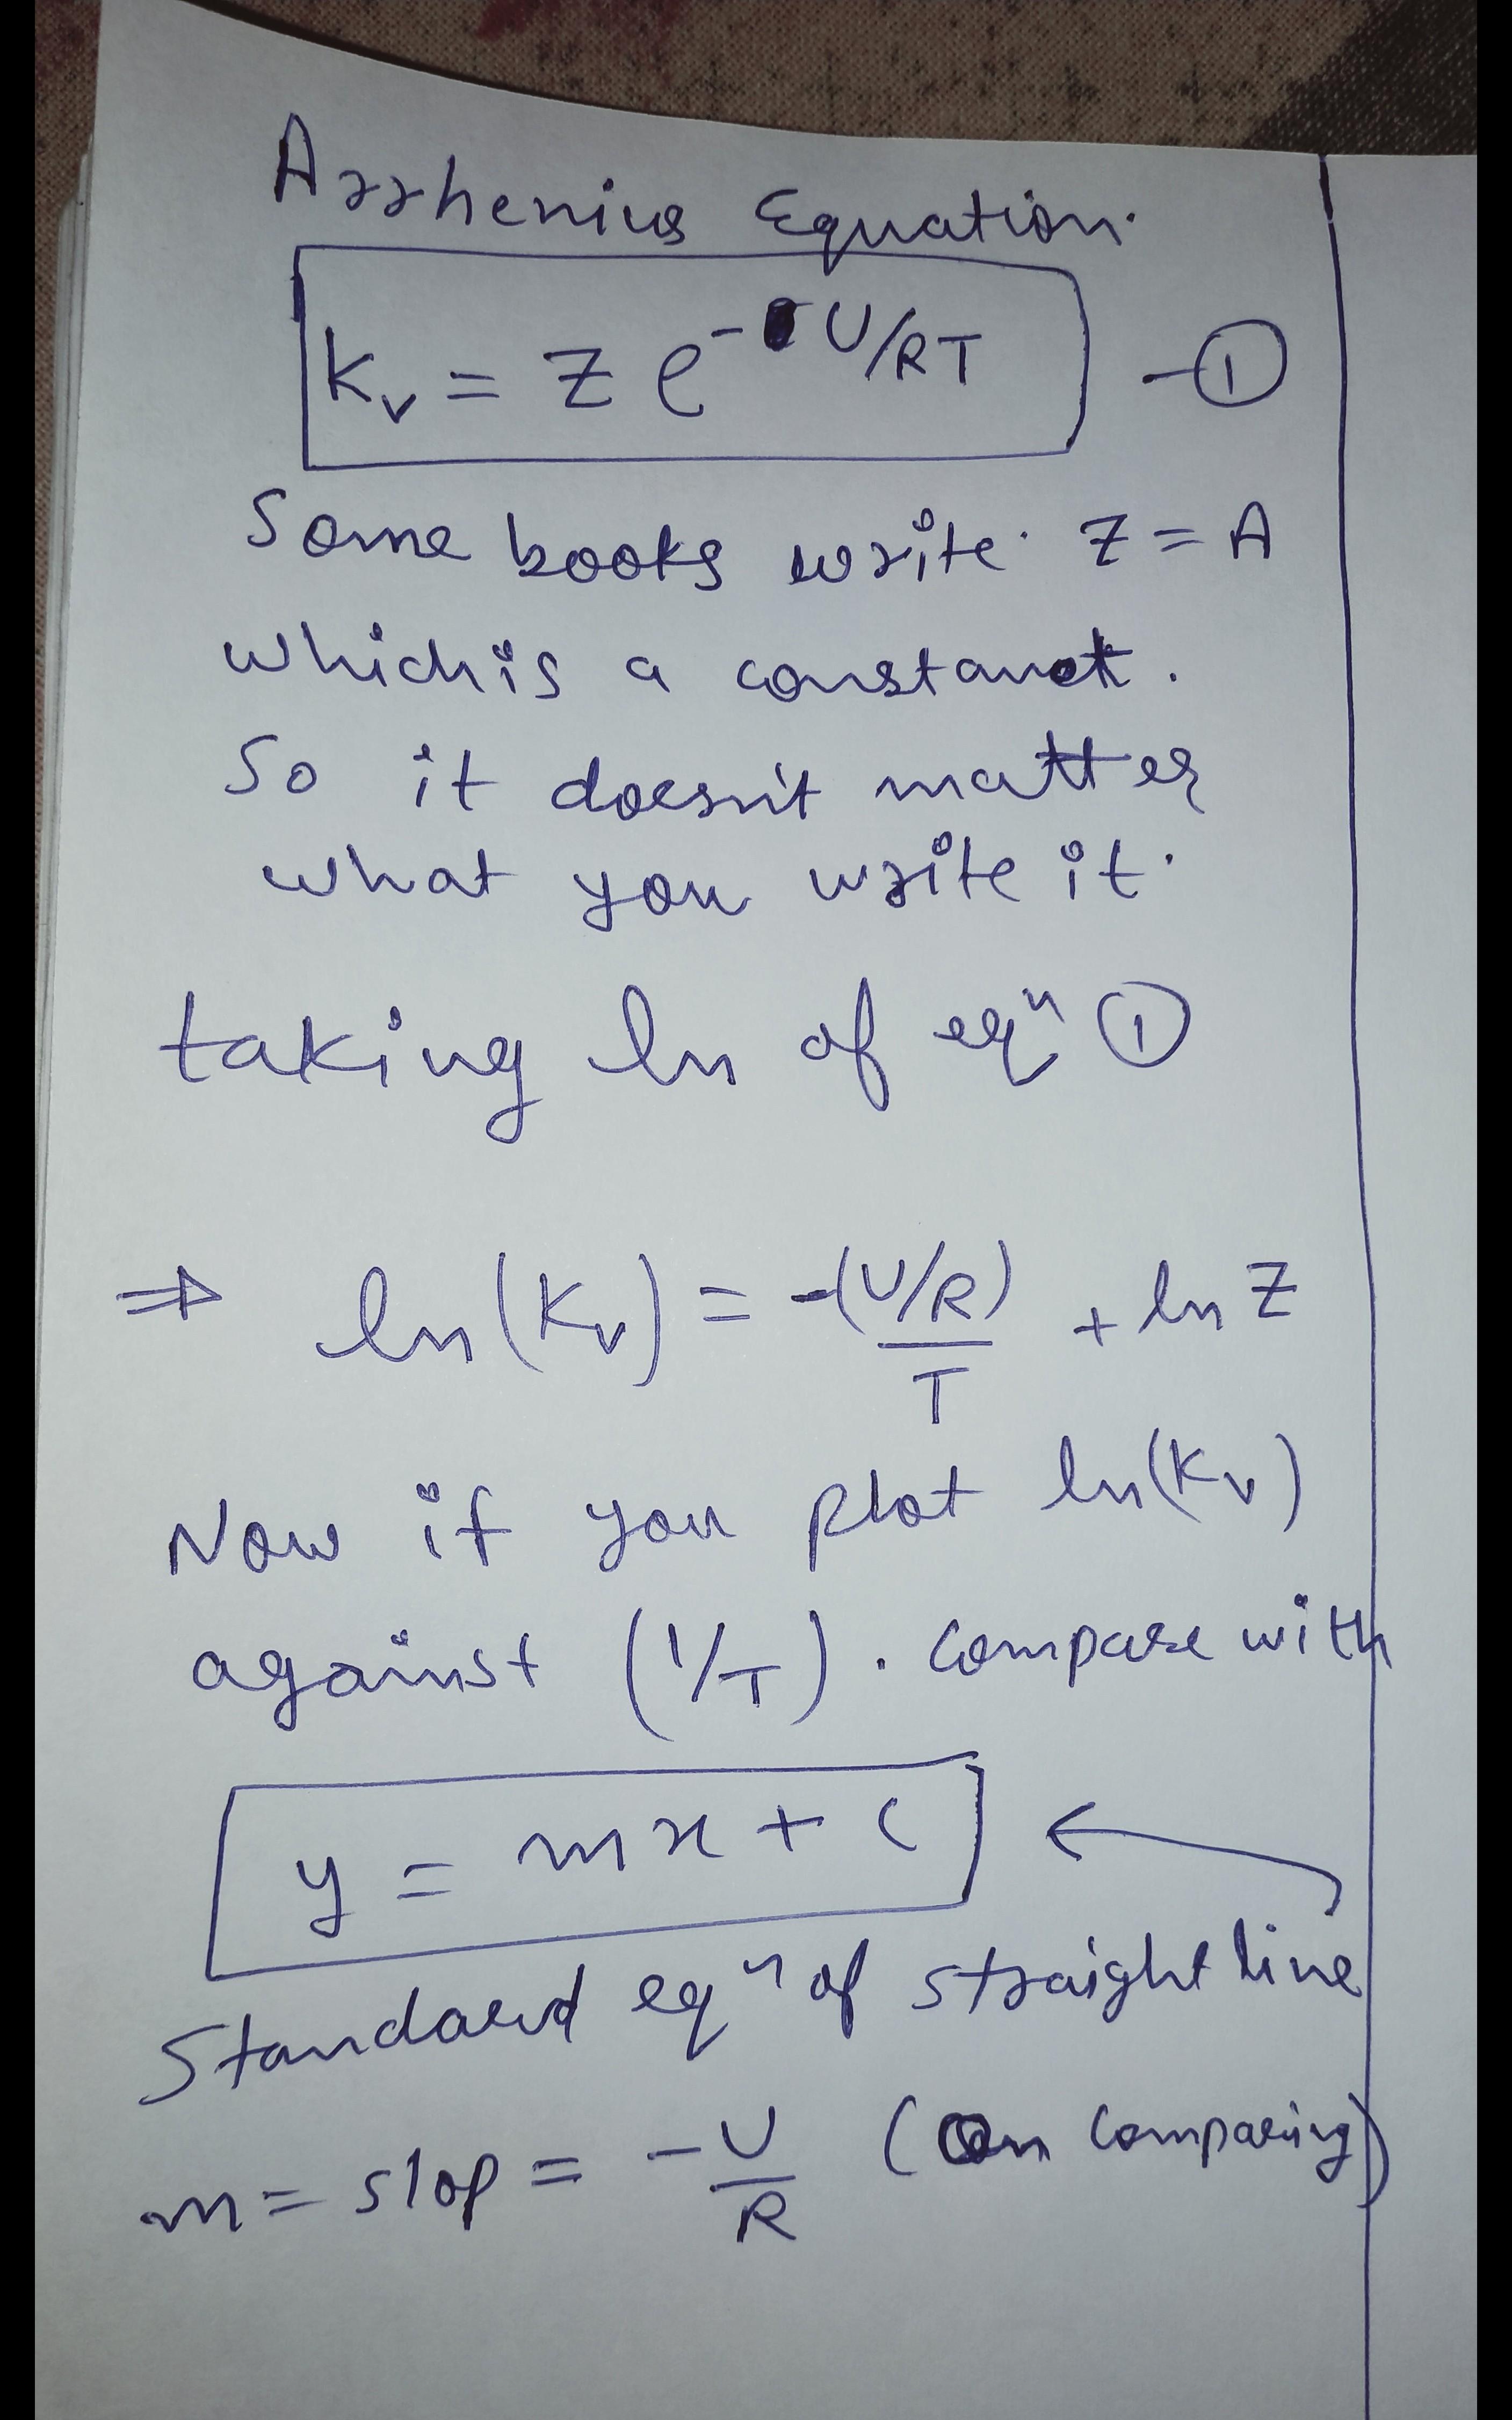 Arrhenius Equation.
Kv = Z e^-U/RT -①
Some books write. Z = A
which is a constant.
So it doesn't matter
what you write it.
taking ln of eqⁿ ①
⇒ ln(Kv) = -(U/R)/T + ln Z
Now if you plot ln(Kv)
against (1/T). compare with
y = mx + c
Standard eqⁿ of straight line
m = slop = -U/R (On comparing)